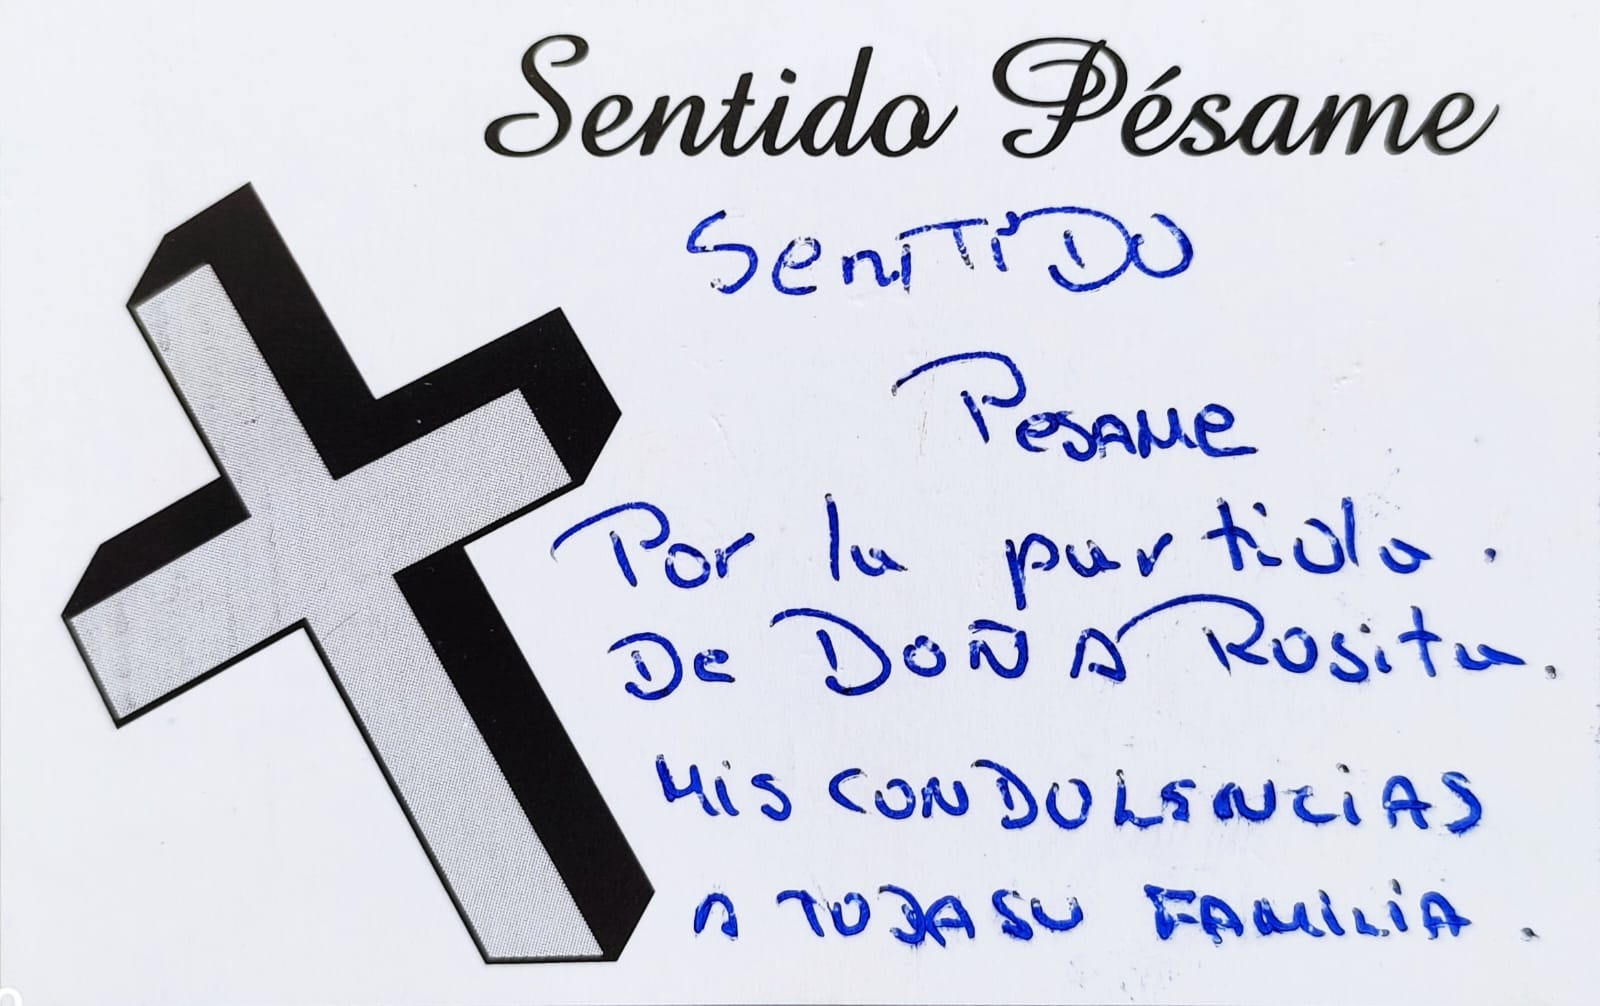 Sentido Pésame
SenTIDO
PesAMe
Por la partida.
De DOÑA Rosita.
MIS CONDOLENCIAS
A TODA SU FAMILIA.